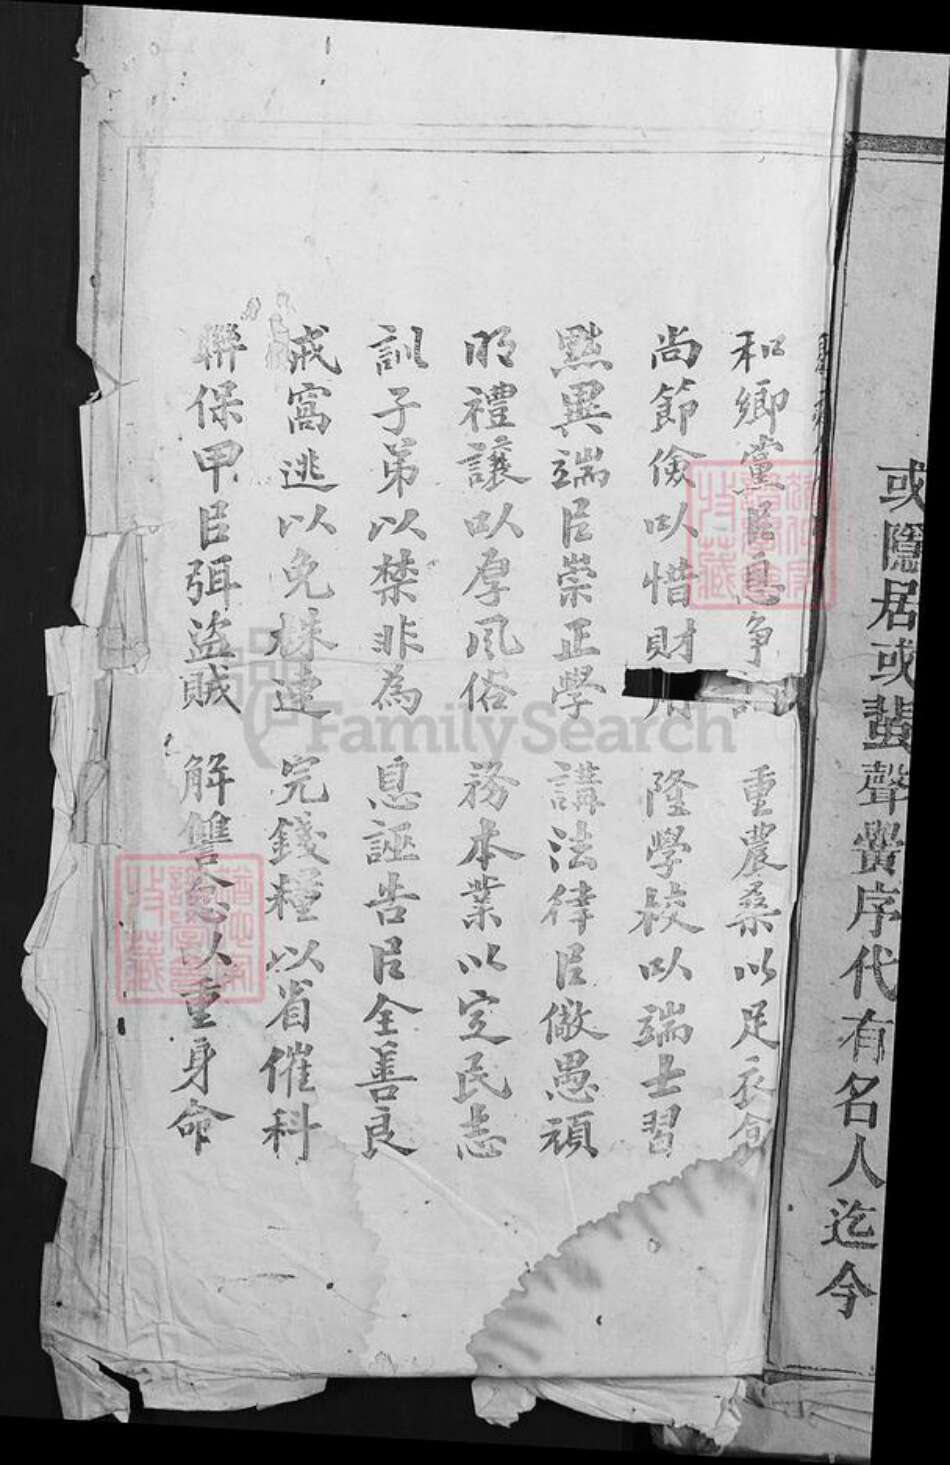 或隱居或蜚聲黌序代有名人迄今
和鄉黨㠯息爭訟 重農桑以足衣食
尚節儉以惜財用 隆學校以端士習
黜異端㠯崇正學 講法律㠯儆愚頑
明禮讓以厚風俗 務本業以定民志
訓子弟以禁非為 息誣告㠯全善良
戒窩逃以免株連 完錢糧以省催科
聯保甲㠯弭盜賊 解讐忿以重身命
FamilySearch